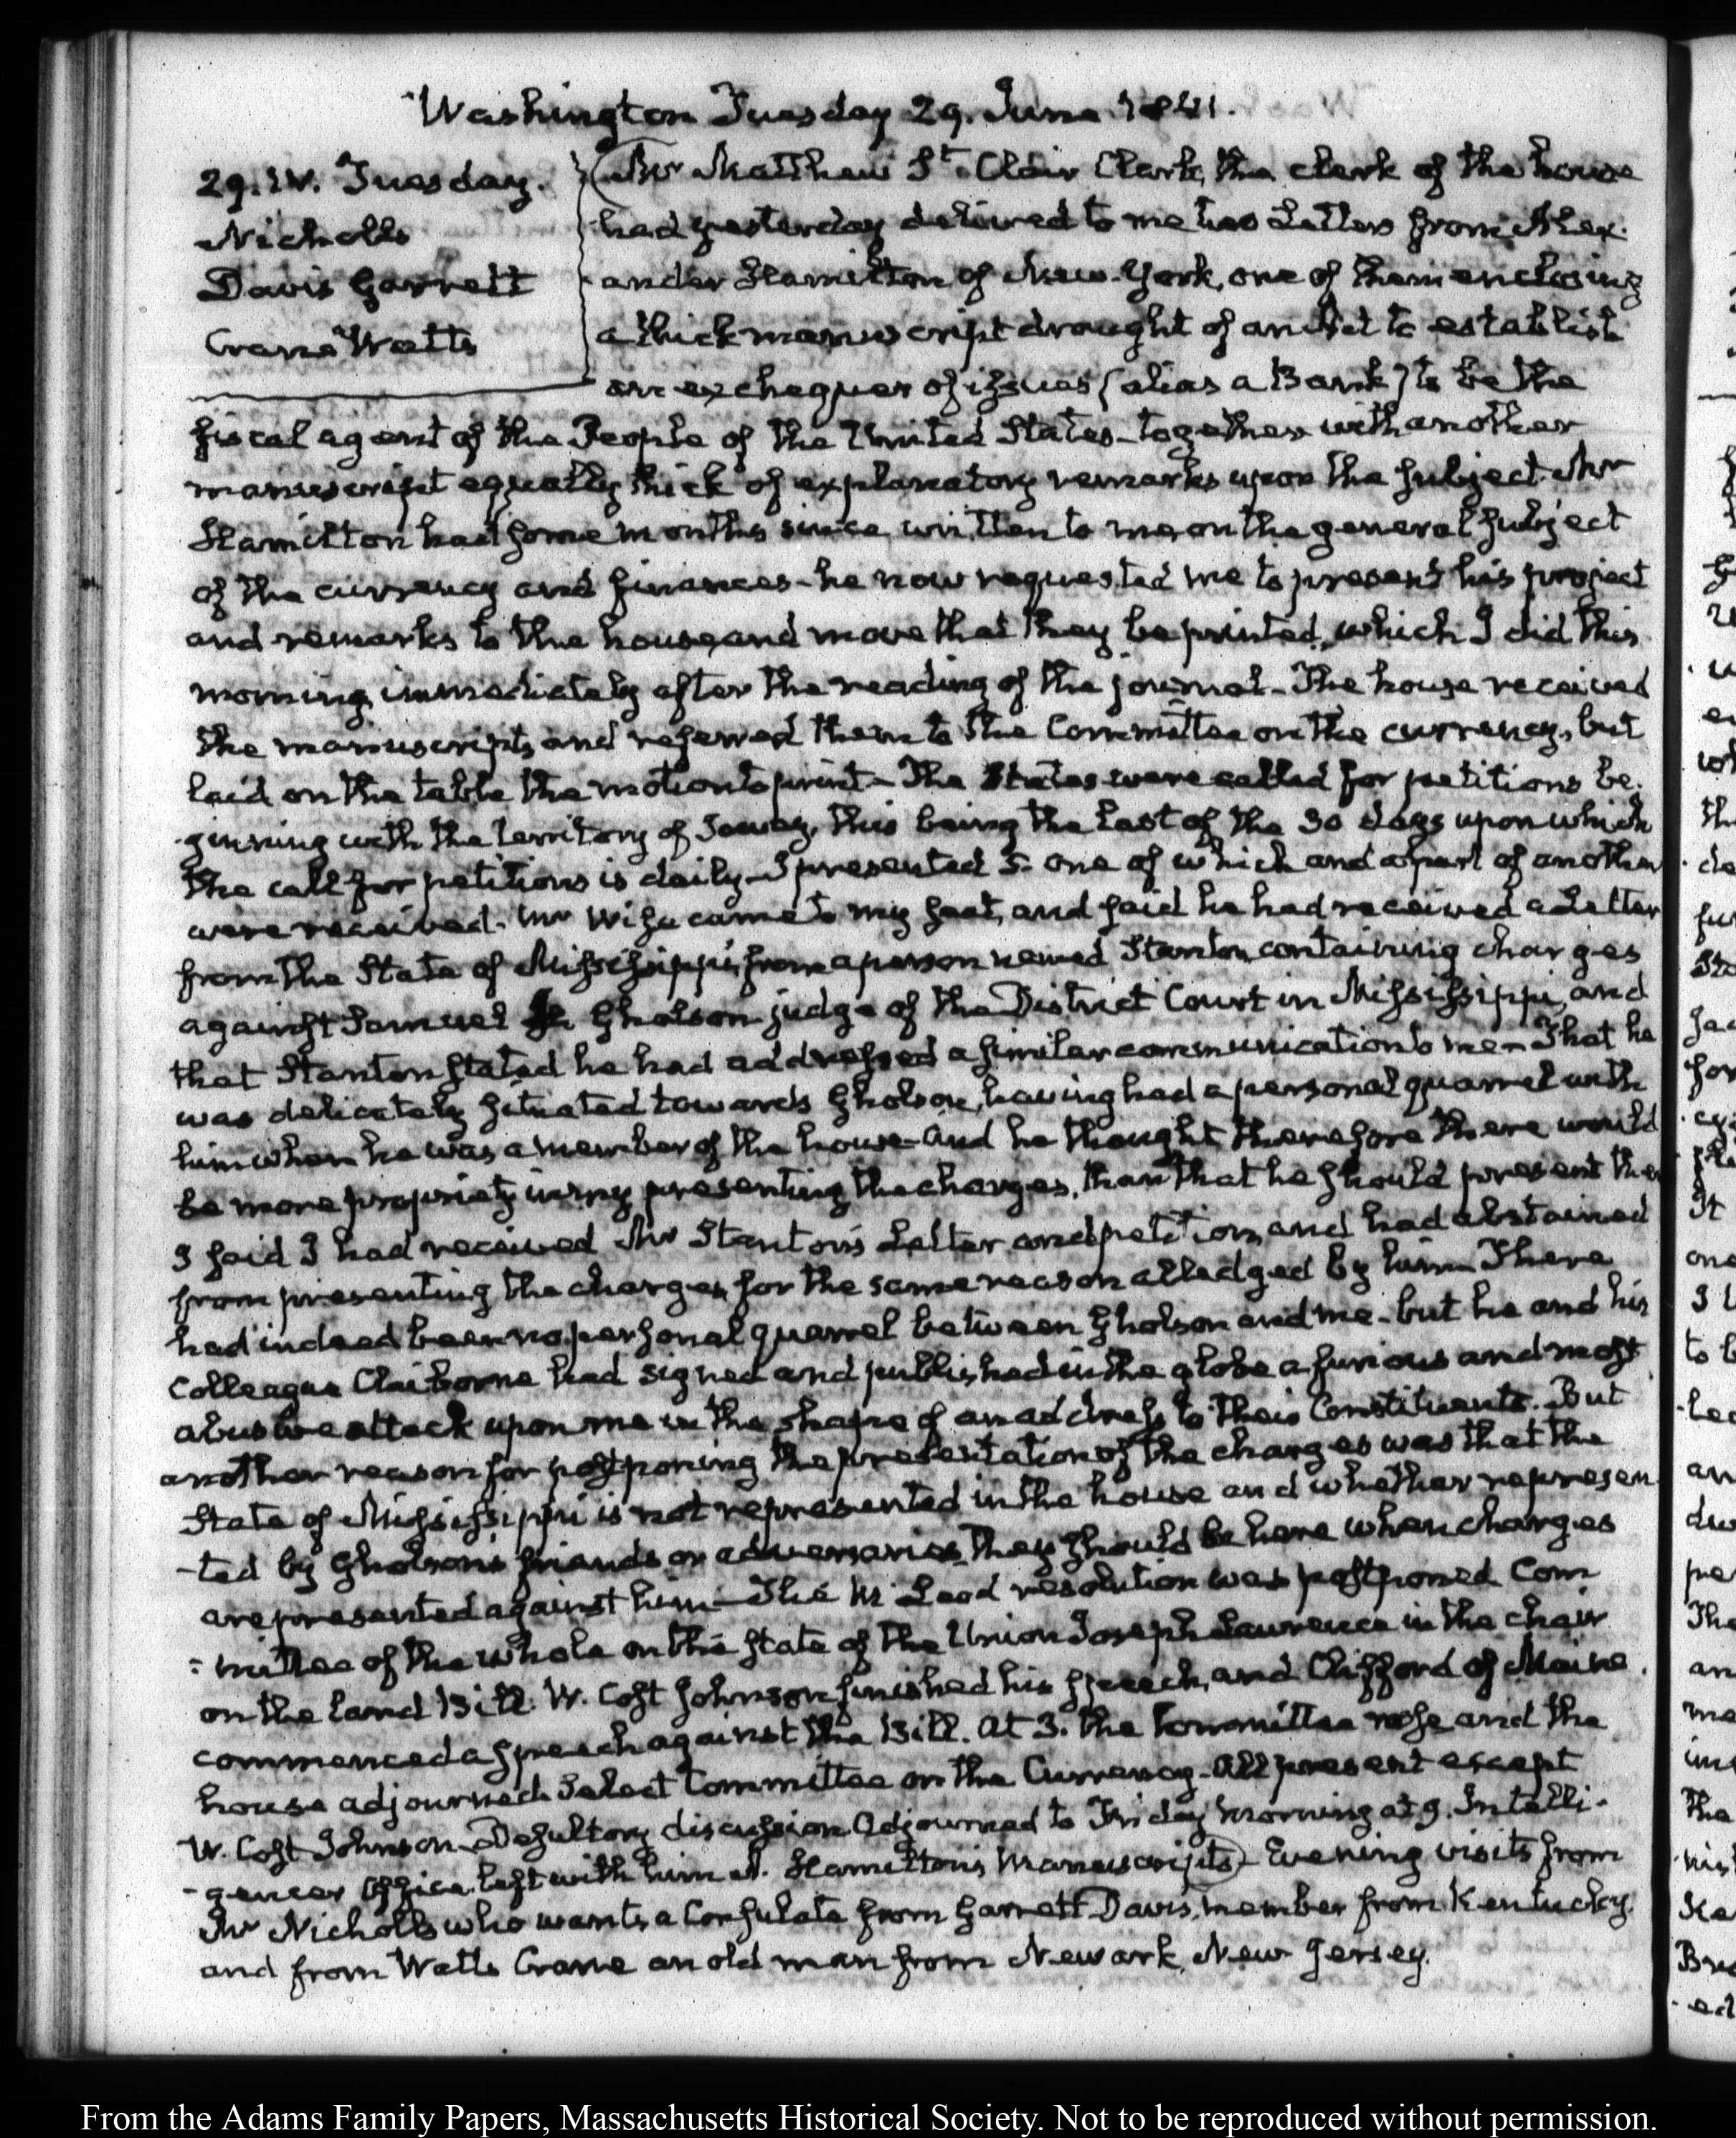 Washington Tuesday 29. June 1841.
29. IV. Tuesday.
Nicholls
Davis Garrett
Crane Watts
Mr Matthew St. Clair Clark, the clerk of the house
had yesterday delivered to me two Letters from Alex-
ander Hamilton of New-York, one of them enclosing
a thick manuscript drought of an Act to establish
an exchequer of issues (alias a Bank) to be the
fiscal agent of the People of the United States—together with another
manuscript equally thick of explanatory remarks upon the subject. Mr
Hamilton had some months since written to me on the general subject
of the currency and finances—he now requested me to present his project
and remarks to the house, and move that they be printed, which I did this
morning, immediately after the reading of the journal—The house received
the manuscripts and referred them to the Committee on the currency, but
laid on the table the motion to print—The States were called for petitions be-
-ginning with the territory of Iowa, this being the last of the 30 days upon which
the call for petitions is daily—I presented 5. one of which and a part of another
were received. Mr Wise came to my seat, and said he had received a Letter
from the State of Mississippi, from a person named Stanton, containing charges
against Samuel Gholson judge of the District Court in Mississippi, and
that Stanton stated he had addressed a similar communication to me—That he
was delicately situated towards Gholson, having had a personal quarrel with
him when he was a member of the house—and he thought therefore there would
be more propriety in my presenting the charges, than that he should present them
I said I had received Mr Stanton's Letter and petition, and had abstained
from presenting the charges, for the same reason alledged by him—There
had indeed been no personal quarrel between Gholson and me—but he and his
Colleague Claiborne had signed and published in the globe a furious and most
abusive attack upon me in the shape of an address to their Constituents. But
another reason for postponing the presentation of the charges was that the
State of Mississippi is not represented in the house and whether represen-
-ted by Gholson's friends or adversaries, they should be here when charges
are presented against him—The Mc Leod resolution was postponed. Com-
-mittee of the whole on the state of the Union Joseph Lawrence in the chair
on the Land Bill. W. Cost Johnson finished his speech, and Clifford of Maine
commenced a speech against the Bill. At 3. the Committee rose and the
house adjourned. Select Committee on the Currency—All present except
W. Cost Johnson—Desultory discussion. Adjourned to Friday morning at 9. Intelli-
-gencer Office. left with him A. Hamilton's Manuscripts) Evening visits from
Mr Nicholls who wants a Consulate from Garrett Davis, member from Kentucky.
and from Watts Crane an old man from Newark, New Jersey.
From the Adams Family Papers, Massachusetts Historical Society. Not to be reproduced without permission.